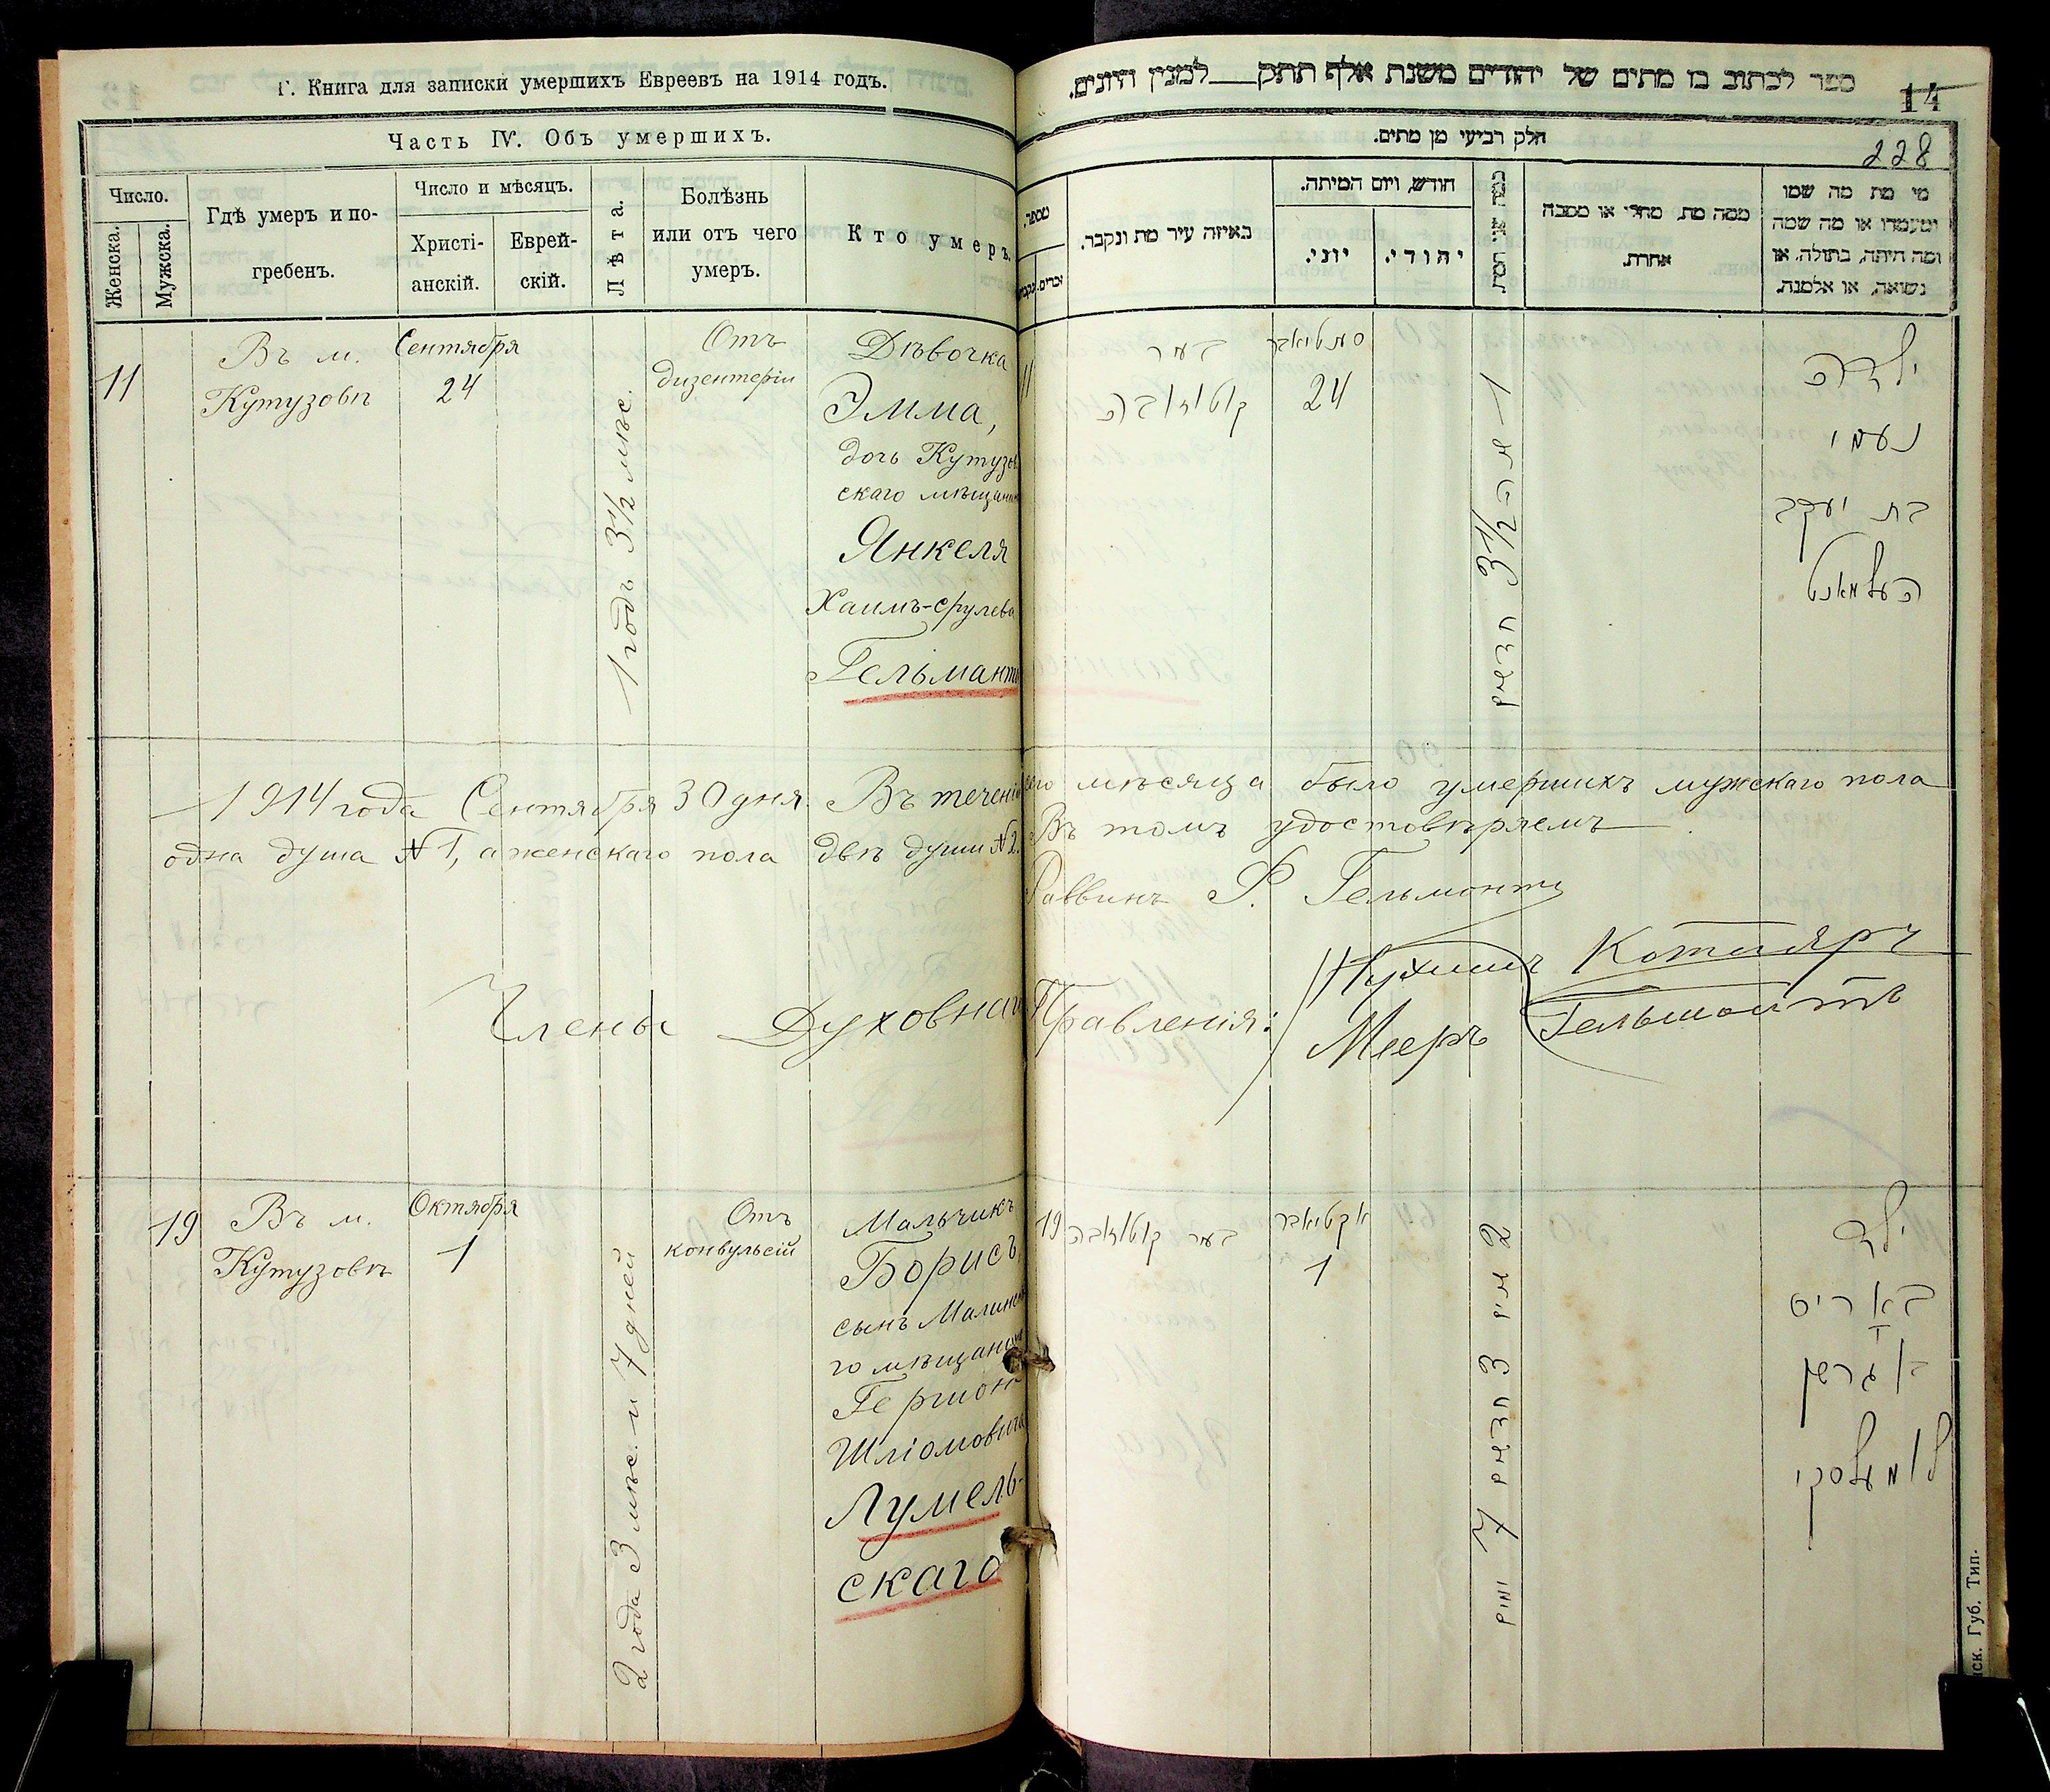 Г. Книга для записки умершихъ Евреевъ на 1914 годъ.
Часть IV. Объ умершихъ.
Число.
Женска.
Мужска.
Гдѣ умеръ и по-
гребенъ.
Число и мѣсяцъ.
Христі-
анскій.
Еврей-
скій.
Лѣта.
Болѣзнь
или отъ чего
умеръ.
Кто умеръ.
11
Въ м.
Кутузовѣ
Сентября
24
1 годъ 3½ мѣс.
Отъ
дизентеріи
Дѣвочка
Эмма,
дочь Кутузов
скаго мѣщанин
Янкеля
Хаимъ-Срулева
Гельмант
1914 года Сентября 30 дня. Въ теченіе сего мѣсяца было умершихъ мужскаго пола
одна душа №1, а женскаго пола двѣ души №2. Въ томъ удостовѣряемъ
Раввинъ Р. Гельмонтъ
Члены Духовнаго Правленія:
Нухимъ Котляръ
Мееръ Гельмонтъ
19
Въ м.
Кутузовѣ
Октября
1
2 года 3 мѣс. и 7 дней
Отъ
конвульсій
Мальчикъ
Борисъ,
сынъ Малинска
го мѣщанина
Гершона
Шліомовича
Лумель-
скаго
14
ספר לכתוב בו מתים של יהודים משנת אלף תתק למנין היונים.
228
חלק רביעי מן מתים.
מספר,
זכרים.
נקבות
באיזה עיר מת ונקבר.
חודש, ויום המיתה.
יוני.
יהודי.
ממה מת, מחלי או מסבה
אחרת.
מי מת מה שמו
ומעמדו או מה שמה
ומה היתה, בתולה, או
נשואה, או אלמנה.
11
בעיר
קוטוזובה
סעפטיאבר
24
1 שנה 3½ חדשים
ילדה
נעמי
בת יעקב
העלמאנט
19
בעיר קוטוזובה
אקטיאבר
1
2 שנים 3 חדשים 7 ימים
ילד
באָריס
ב׳ גרשון
לומעלסקי
Губ. Тип.